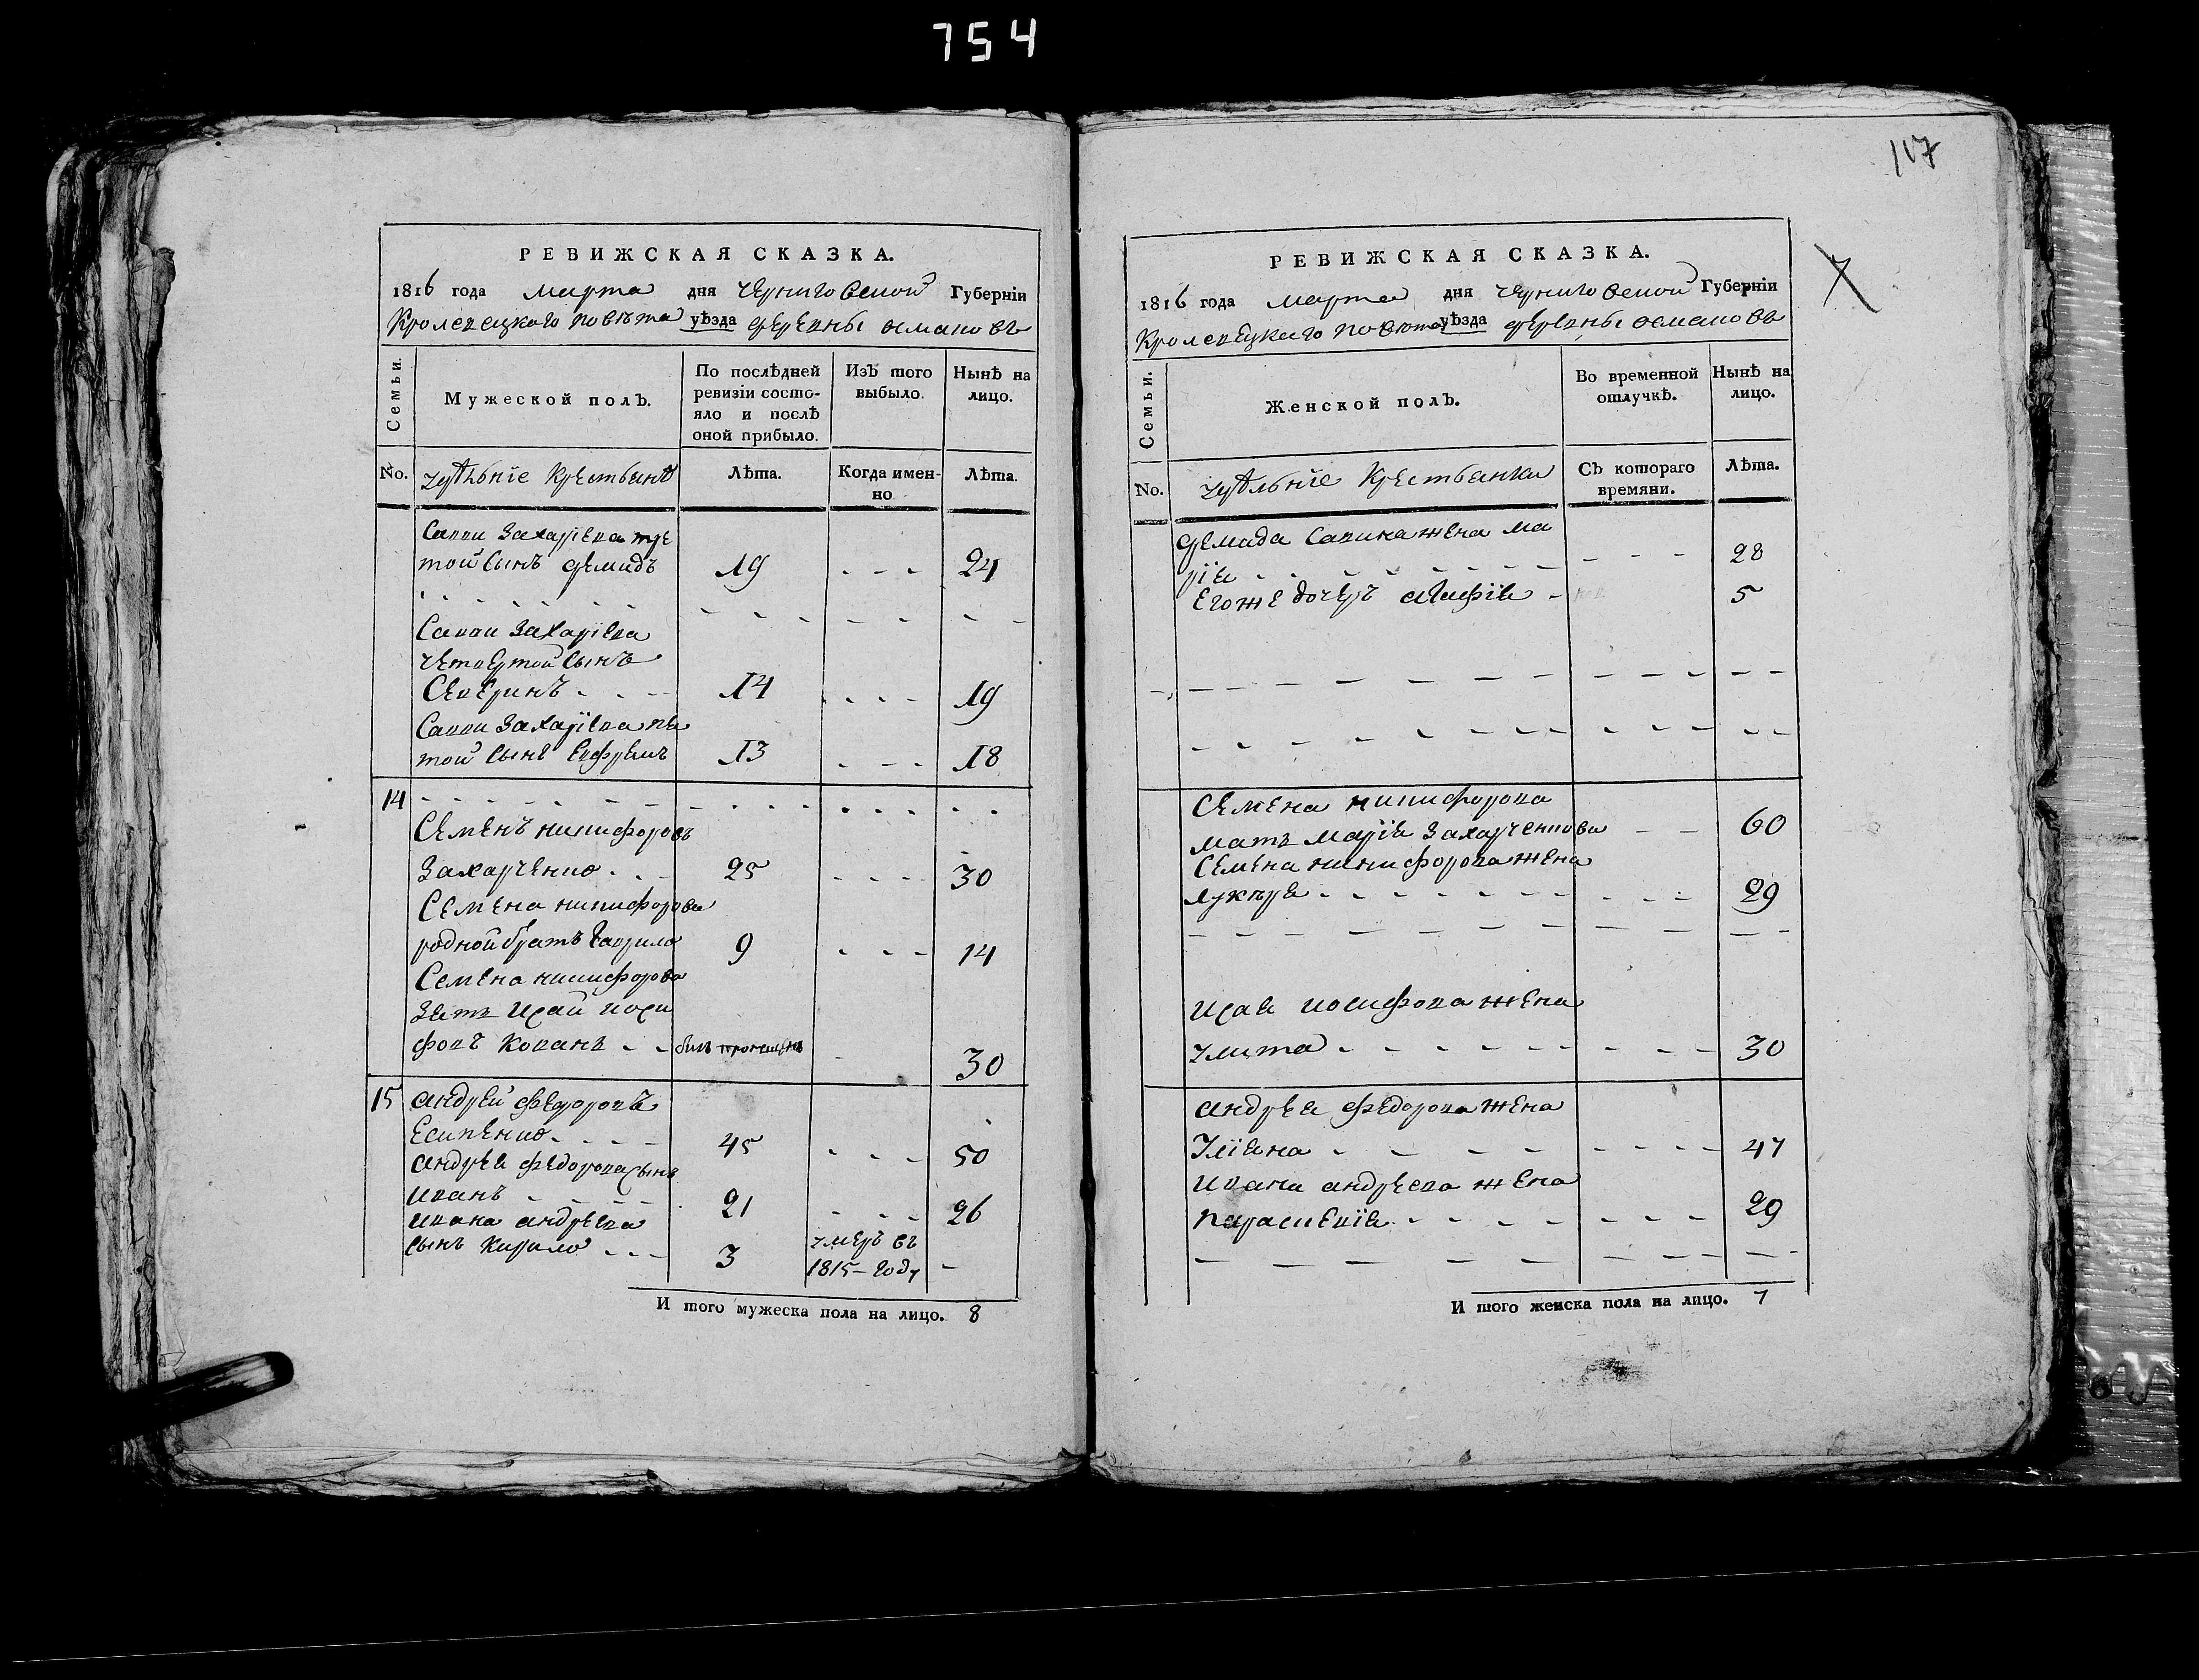 754
РЕВИЖСКАЯ СКАЗКА.
1816 года марта дня Черниговской Губерніи
Кролевецкого повѣта уѣзда деревны османовъ
Семьи.
Мужеской полъ.
По послѣдней
ревизіи состо-
яло и послѣ
оной прибыло.
Изъ того
выбыло.
Нынѣ на
лицо.
No.
удѣльніе Крестьянѣ
Лѣта.
Когда имен-
но
Лѣта.
Савви Захаріева тре
той сынъ демидъ 19 - - - 24
Савви Захаріева
четвертой сынъ
Северинъ - - - 14 - - - 19
Савви Захаріева пя
той сынъ Евфремъ 13 - - - 18
14
Семенъ никифоровъ
Захарченко - - - 25 - - - 30
Семена никифорова
родной братъ гаврило 9 - - - 14
Семена никифорова
зять Исай иоси
фовъ Кованъ - - билъ - 30
15 андрей федоровъ
Есипенко - - - 45 - - - 50
андрея федорова сынъ
иванъ - - - - 21 - - - 26
ивана андреева
сынъ Кирило - - - 3 умеръ въ
1815-году -
И того мужеска пола на лицо. 8
117
РЕВИЖСКАЯ СКАЗКА.
1816 года марта дня Черниговской Губерніи
Кролевецкаго повѣта уѣзда деревны османовъ
Семьи.
Женской полъ.
Во временной
отлучкѣ.
Нынѣ на
лицо.
No.
удѣльніе Крестьянки
Съ котораго
времяни.
Лѣта.
демида Савина жена ма
рія - - - - - - - 28
Его же дочеръ агафія - 5
Семена никифорова
мать марія Захарченкова - - 60
Семена никифорова жена
лукѣря - - - - - - - - 29
Исая иосифова жена
улита - - - - - - - - 30
андрея федорова жена
Уліяна - - - - - - - - 47
ивана андреева жена
параскевія - - - - - - - - 29
И того женска пола на лицо. 7